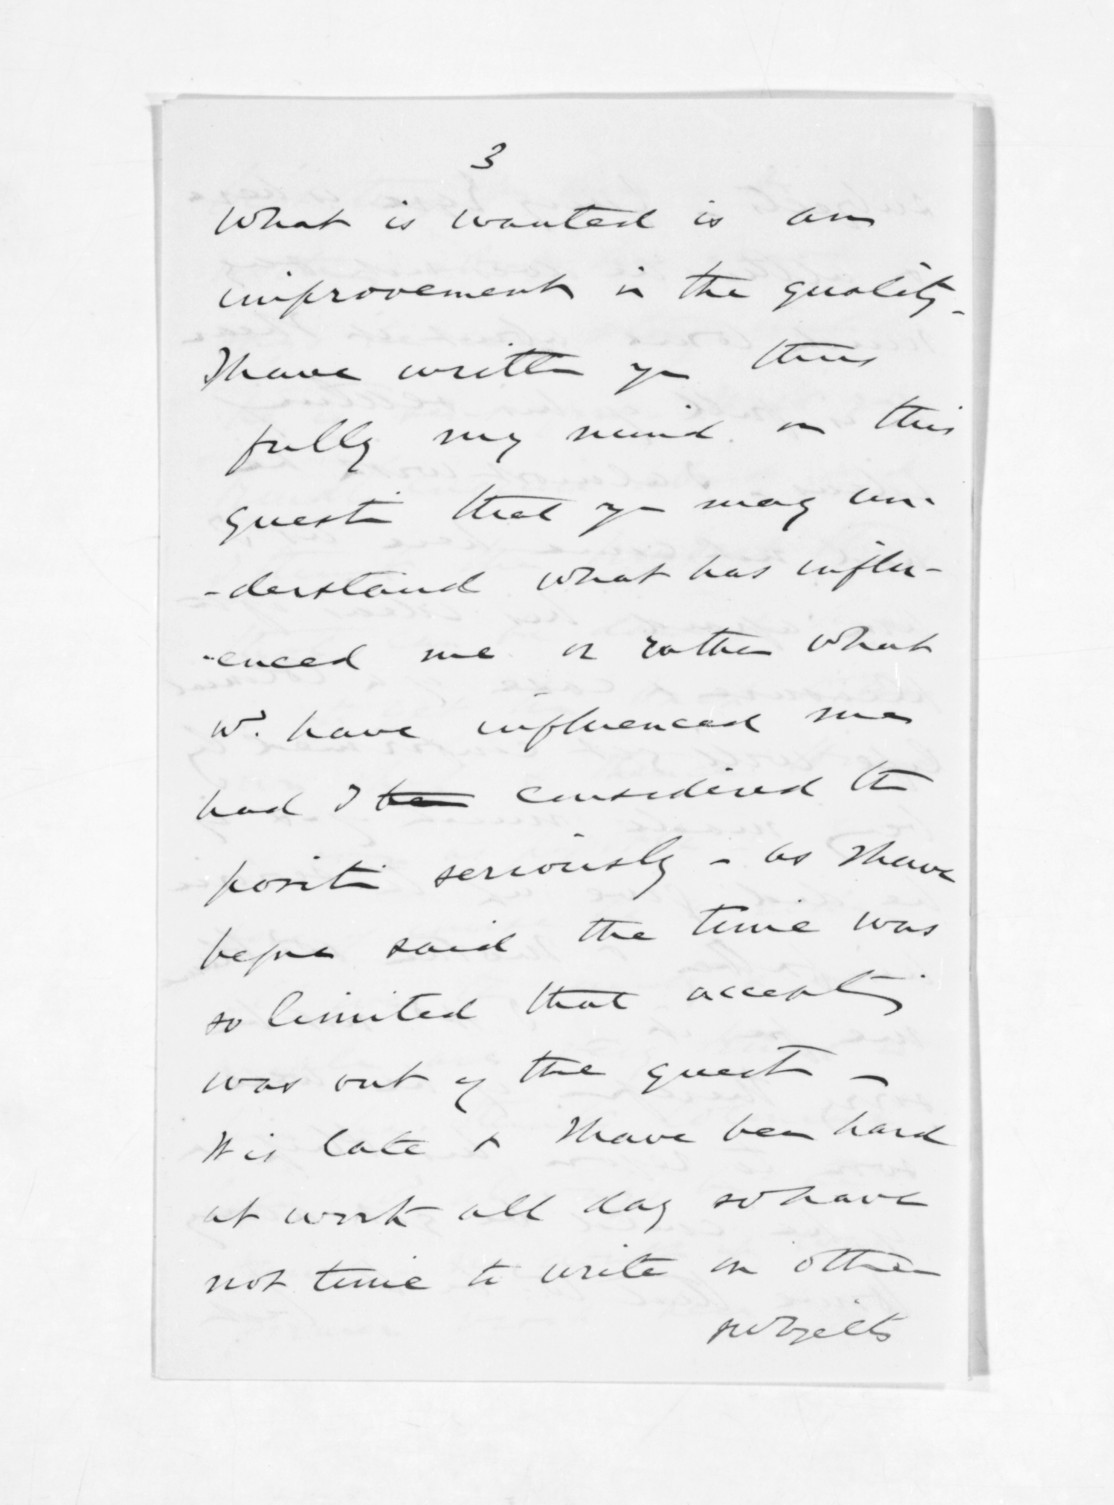 3
What is wanted is an
improvement in the quality.
I have written yr thus
fully my mind on this
questn that yr may un-
-derstand what has influ-
-enced me or rather what
wd. have influenced me
had I considered the
positn seriously - as I have
before said the time was
so limited that accepting
was out of the questn -
It is late & I have been hard
at work all day so have
not time to write on other
subjects